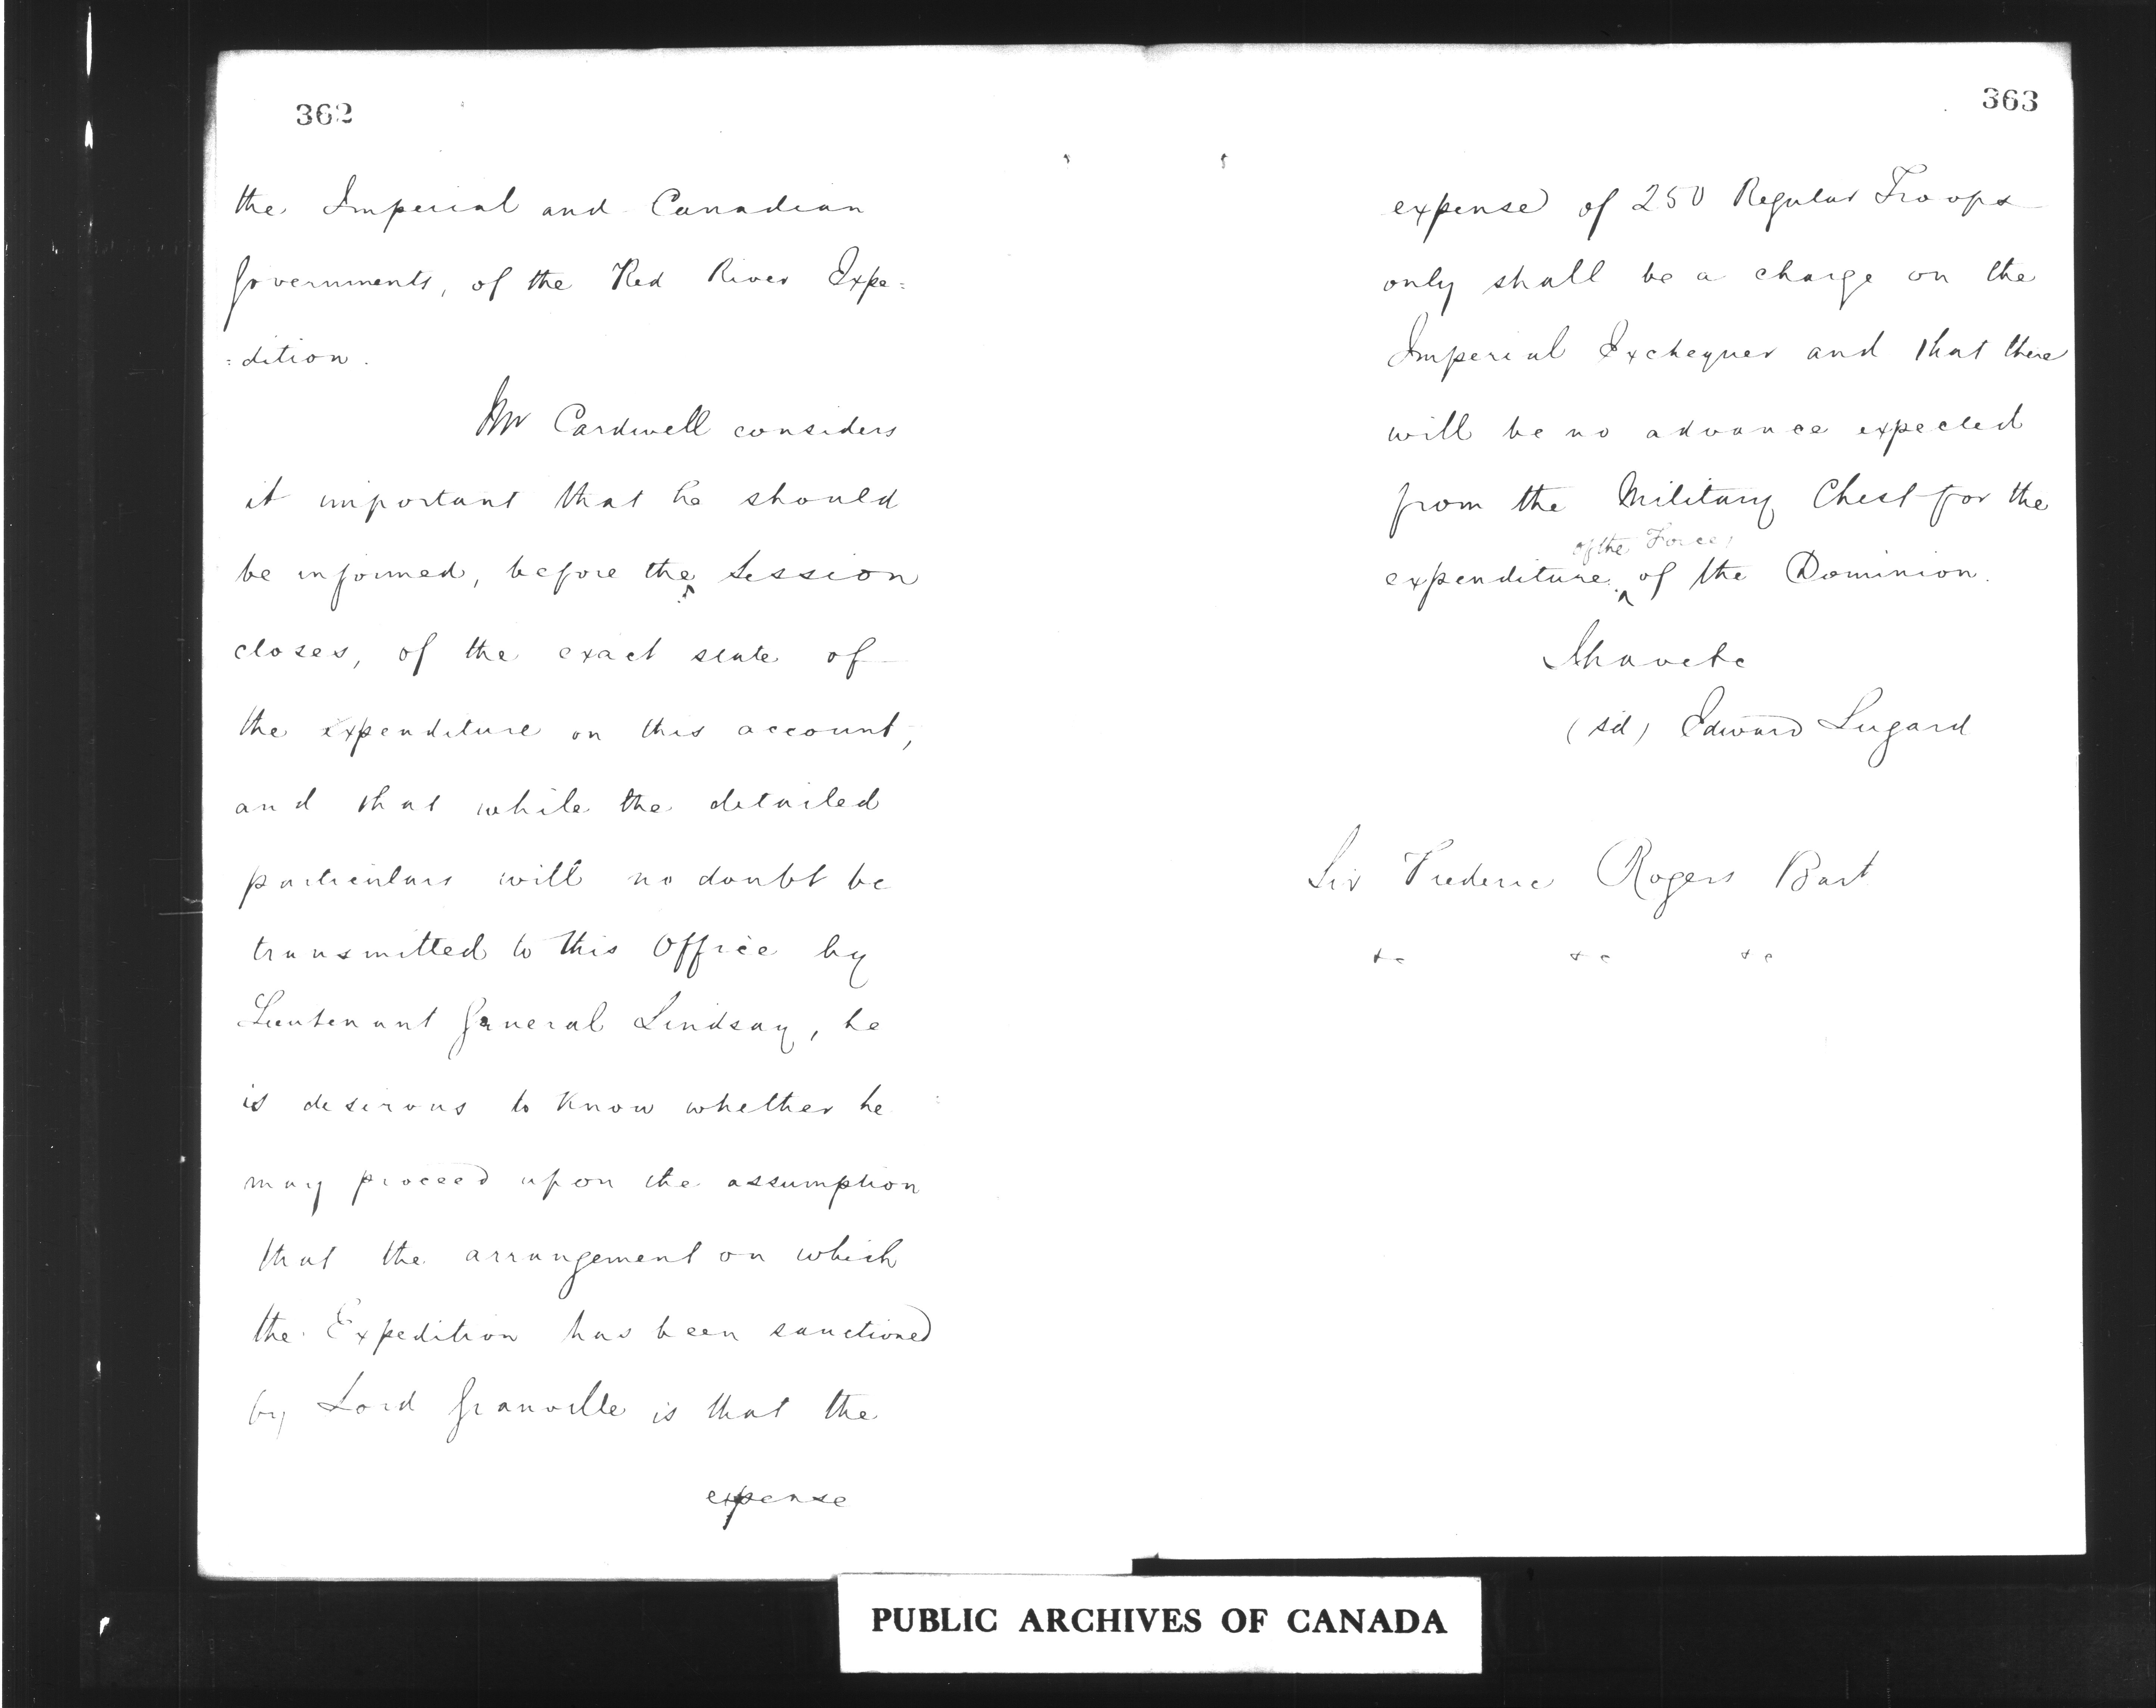 362
the Imperial and Canadian
Governments, of the Red River Expe=
=dition.
Mr Cardwell considers
it important that he should
be informed, before the Session
closes, of the exact state of
the expenditure on this account,
and that while the detailed
particulars will no doubt be
transmitted to this Office by
Lieutenant General Lindsay, he
is desirous to know whether he
may proceed upon the assumption
that the arrangement on which
the Expedition has been sanctioned
by Lord Granville is that the
expense
363
expense of 250 Regular Troops
only shall be a charge on the
Imperial Exchequer and that there
will be no advance expected
from the Military Chest for the
of the Force
expenditure ^ of the Dominion.
I have &c
(sd) Edward Lugard
Sir Frederic Rogers Bart
&c &c &c
PUBLIC ARCHIVES OF CANADA